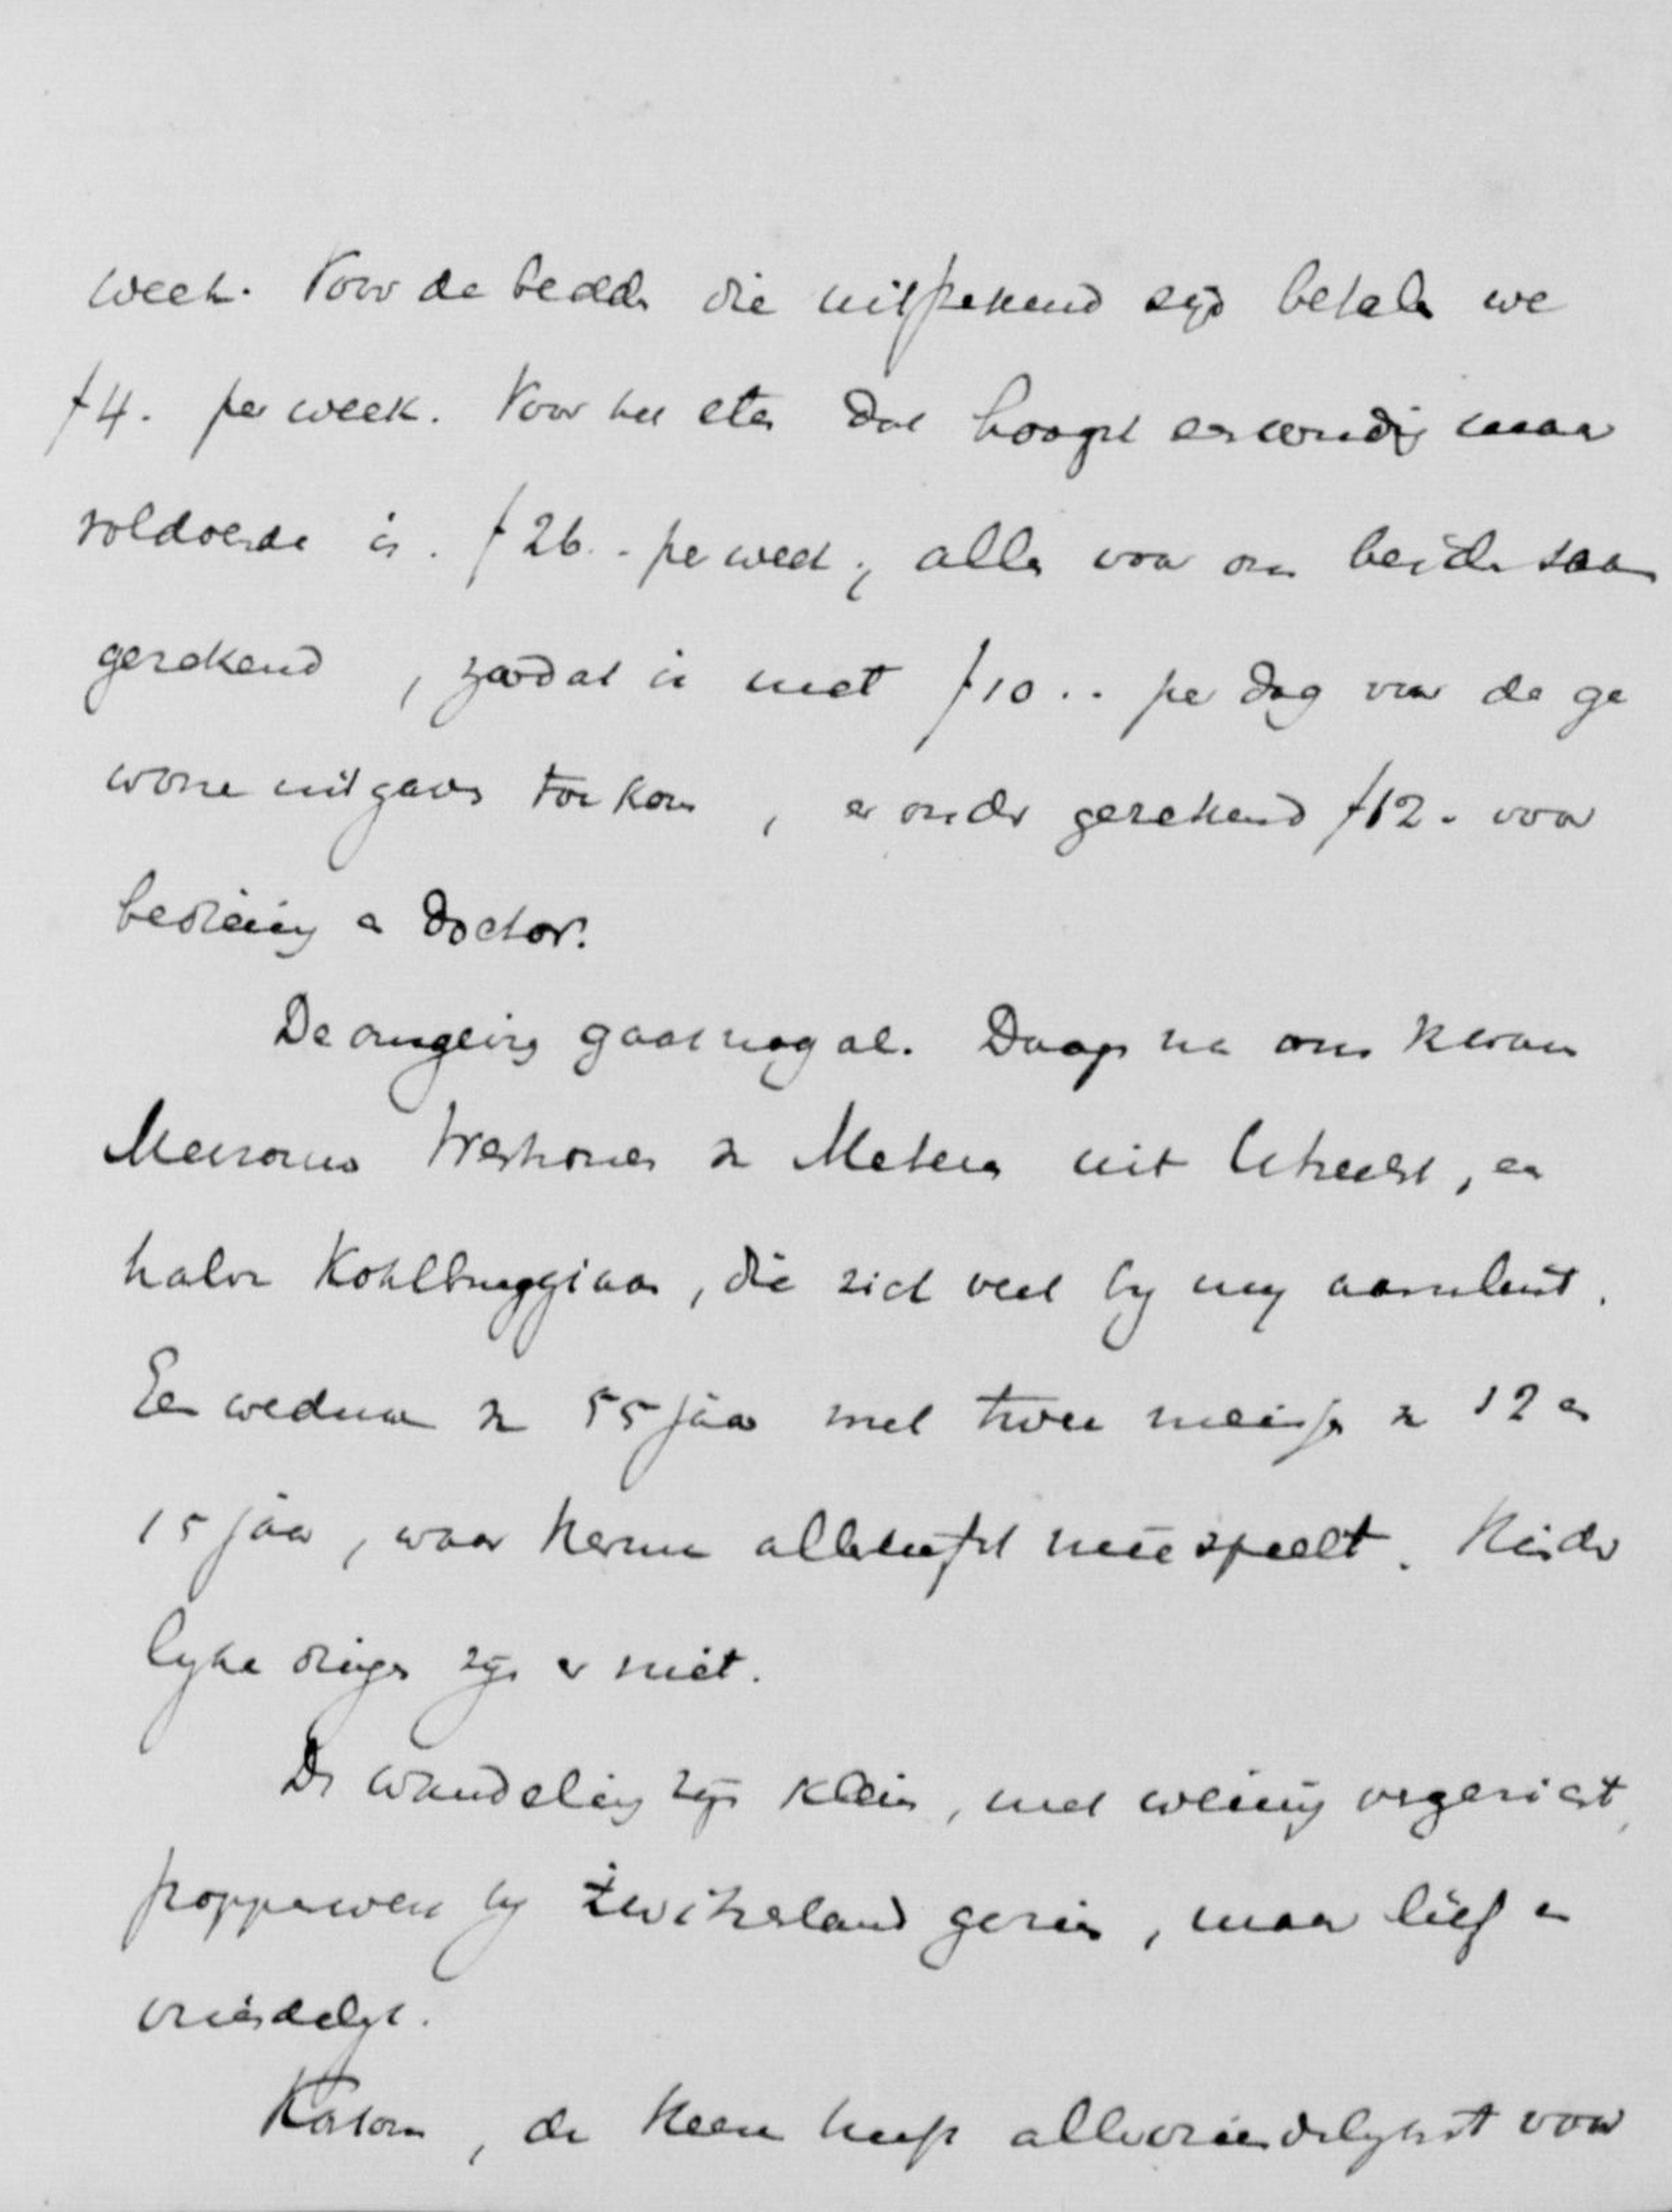 week. Voor de bedden die uitstekend zijn betalen we
f 4. per week. Voor het eten dat hoogst eenvoudig maar
voldoende is. f 26.- per week; alles voor ons beide saam
gerekend, zoodat ik met f 10.. per dag voor de ge
wone uitgaven toekom, er onder gerekend f 12.- voor
bediening en Doctor.
De omgeving gaat nogal. Daags na ons kwam
Mevrouw uit Utrecht, een
halve Kohlbruggiaan, die zich veel by my aansluit.
Een weduwe v 55 jaar met twee meisjes v 12 en
15 jaar, waar Herman allerliefst mee speelt. Hinder
lyke dingen zyn er niet.
De wandelingen zyn klein, met weinig vergezicht,
poppenwerk by Zwitserland gezien, maar lief en
vriendelyk.
, de Heer heeft allervriendelykst voor